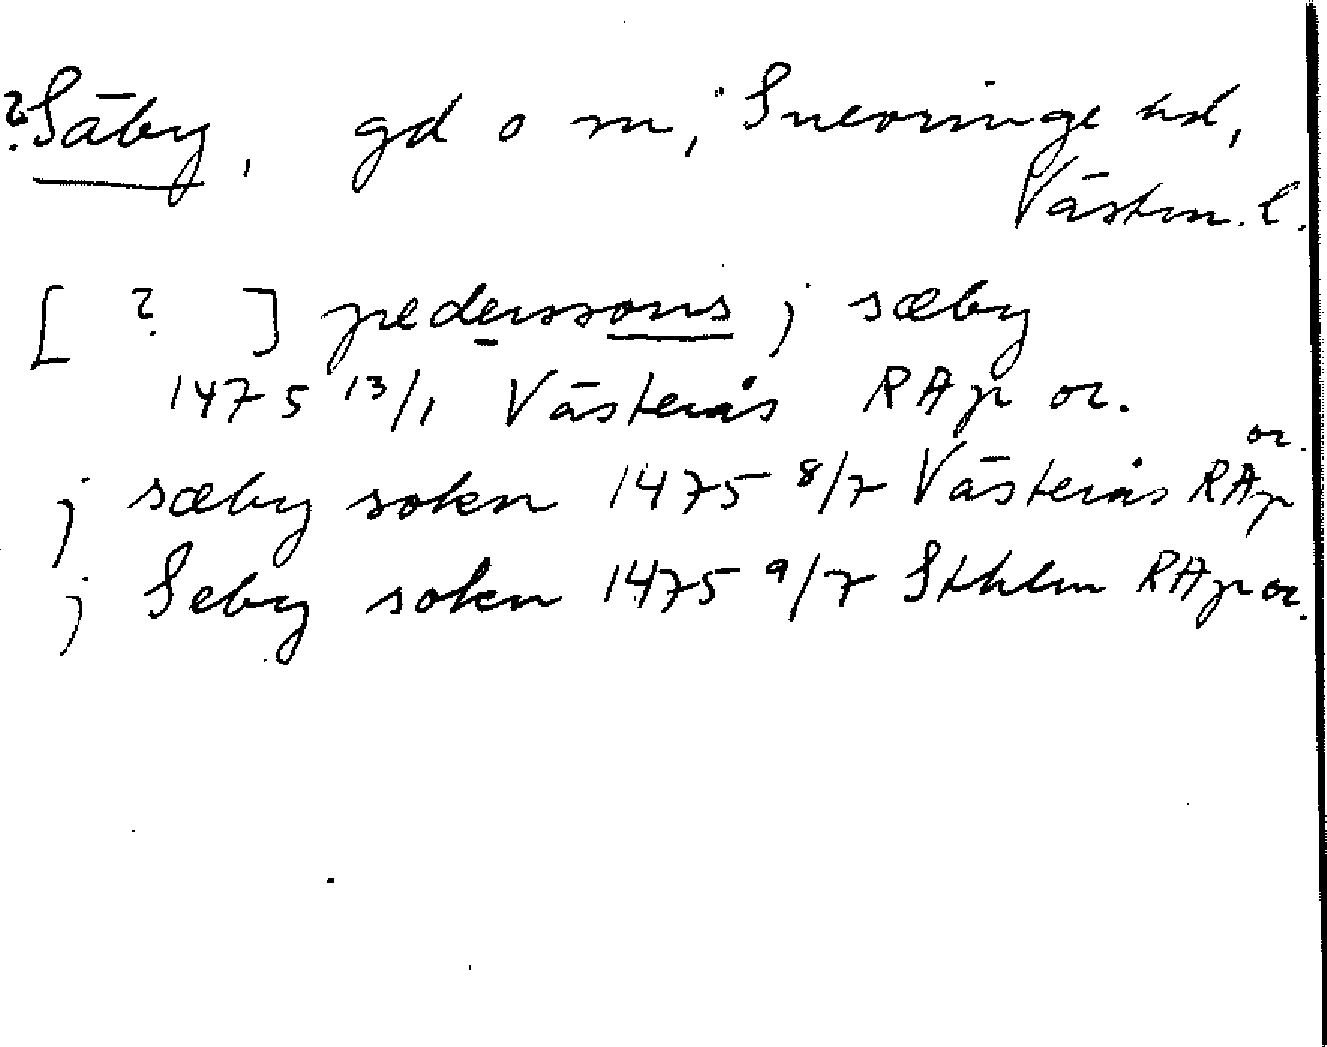 ?Säby, gd o sn, Snevringe hd,
Västm. l.
[ ? ] pederssons j sæby
1475 13/1 Västerås RAp or.
j sæby sokn 1475 8/7 Västerås RAp or.
j Seby sokn 1475 9/7 Sthlm RAp or.